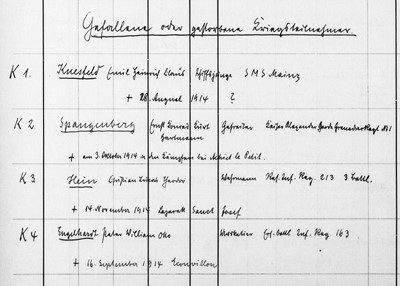 Gefallene oder gestorbene Kriegsteilnehmer.
K 1. Kuesfeld Emil Heinrich Claus Schiffsjunge S M S Mainz
+ 28. August 1914 ?
K 2. Spangenberg Ernst Konrad Curt Hartmann Gefreiter Kaiser Alexander Garde Grenadier Regt. N 1
+ am 3. Oktober 1914 in den Kämpfen bei Achiet le Petit.
K 3 Hein Christian Wehrmann Res. Inf. Reg. 213 3 Batll.
+ 14. November 1914 Lazarett Sanct Josef
K 4 Engelhardt Peter William Otto Batll Inf. Reg 163
+ 16. September 1914